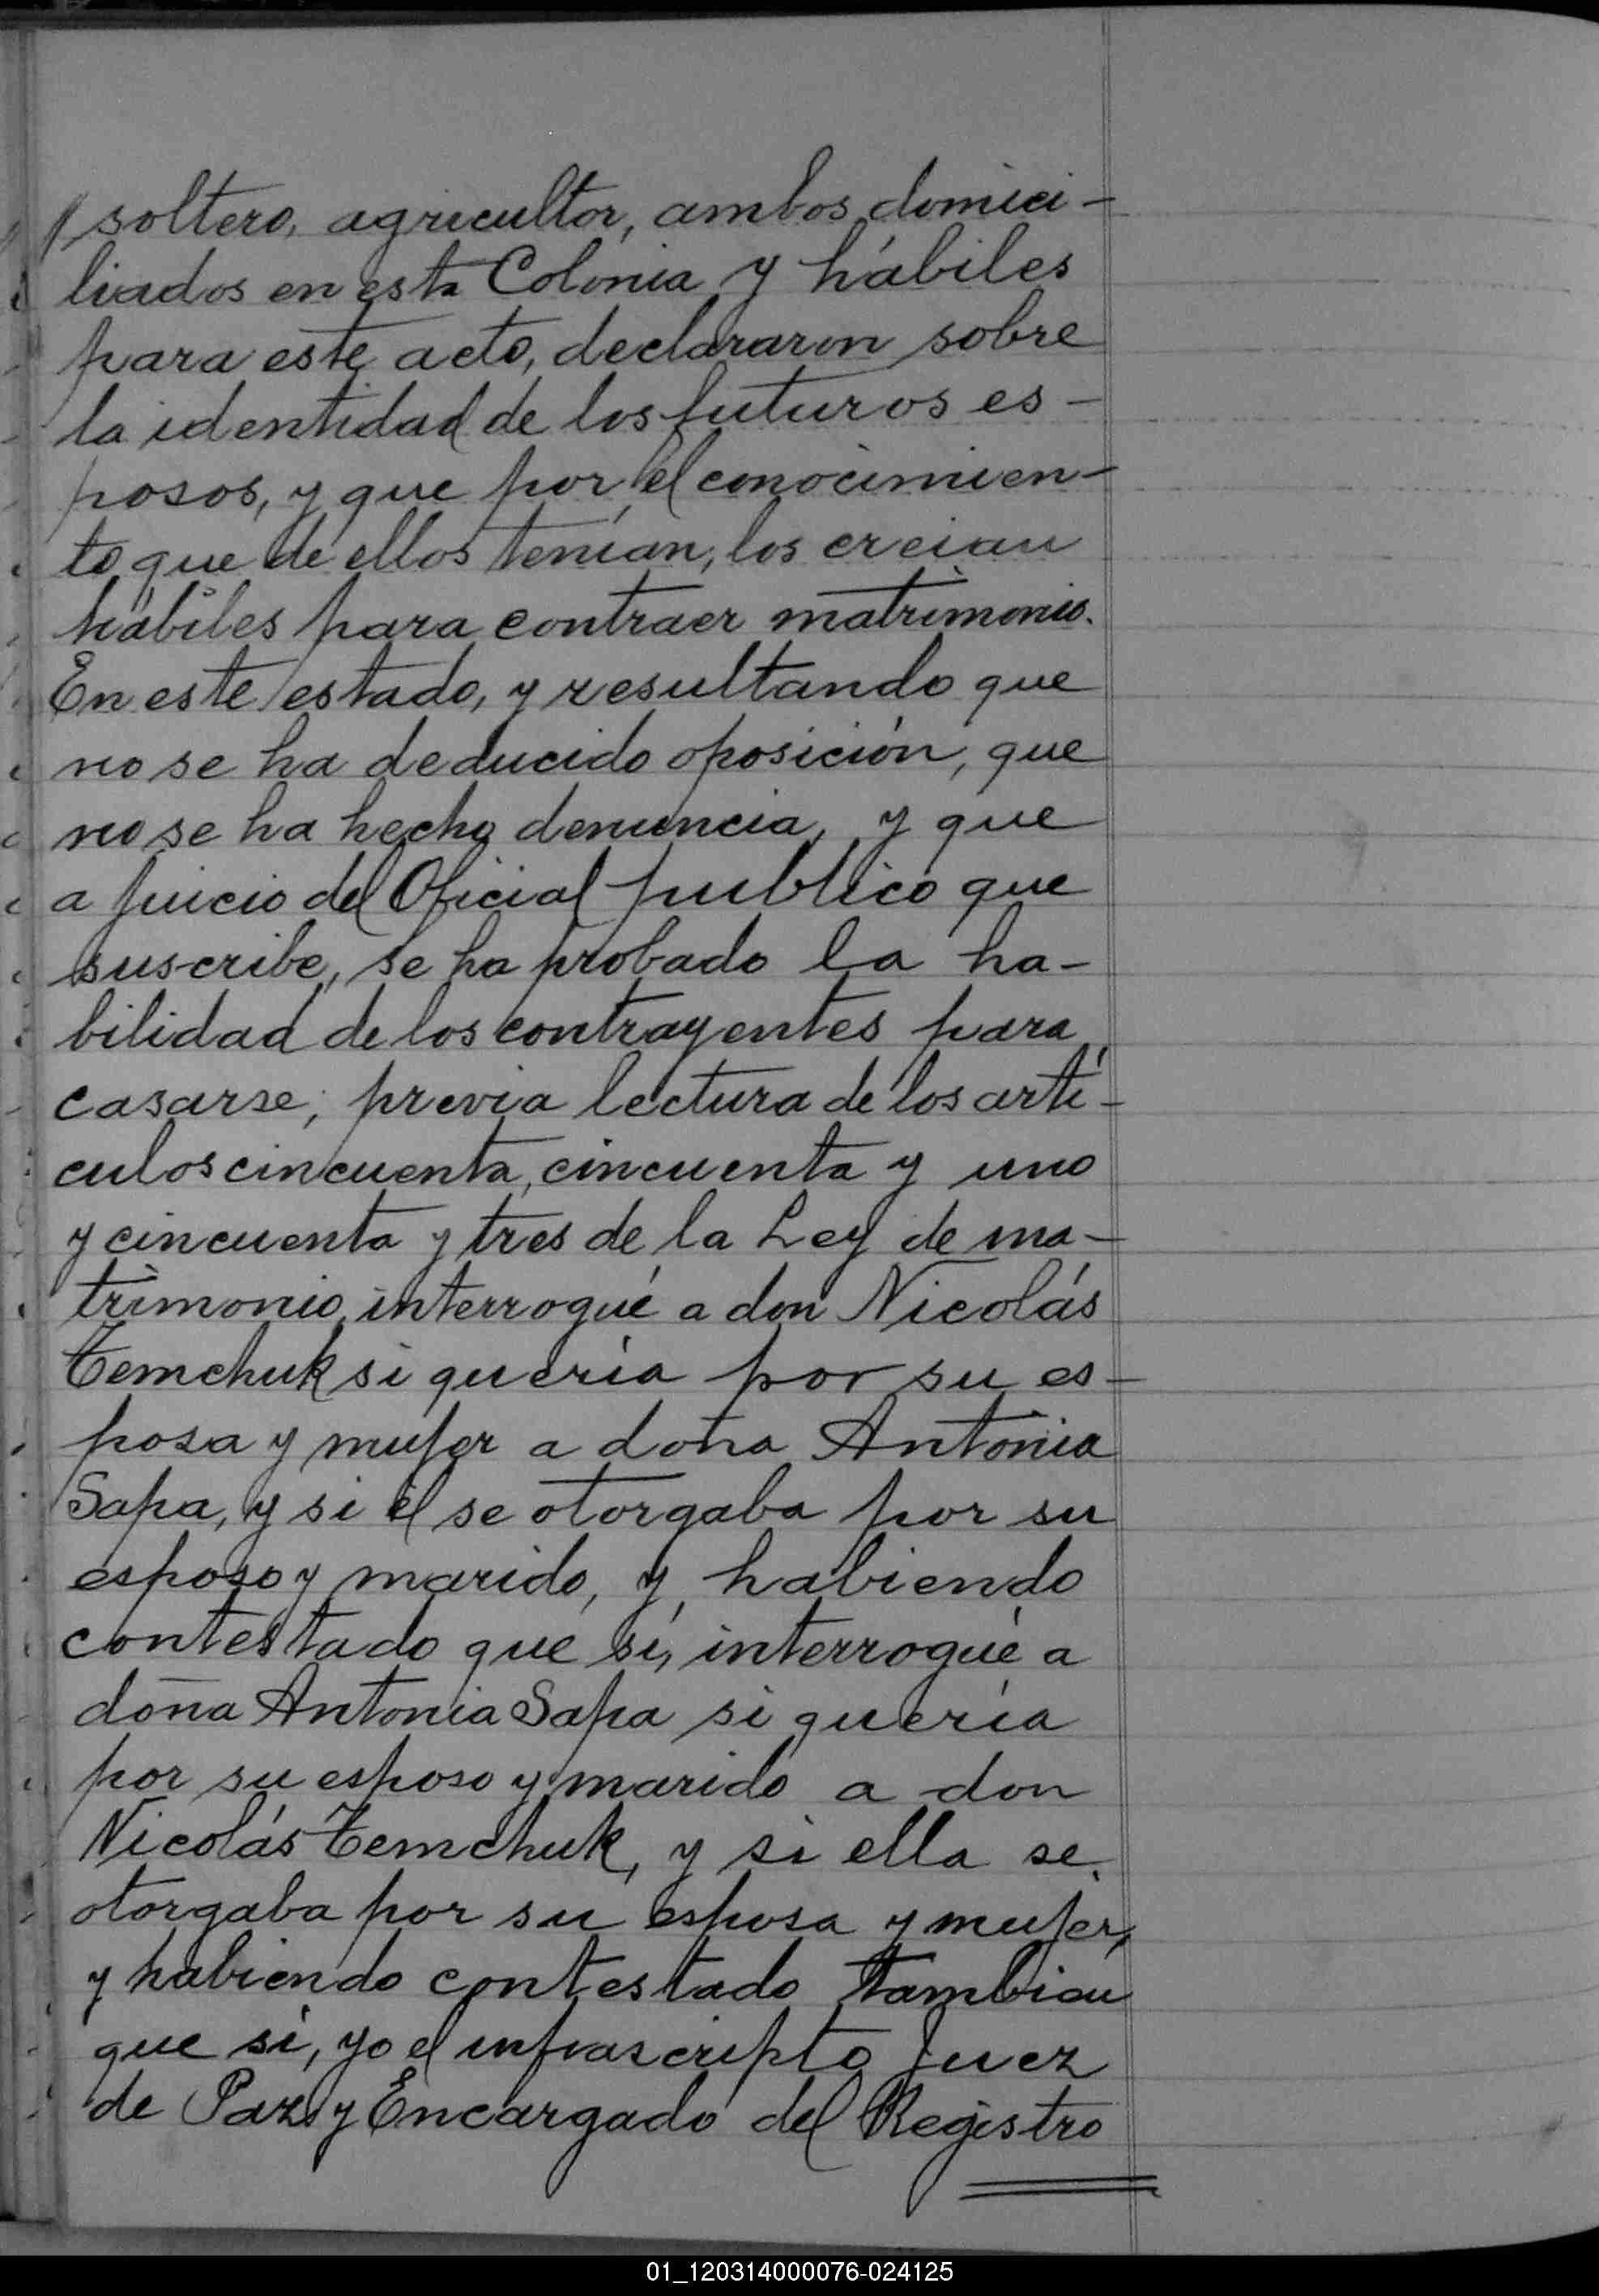 // soltero, agricultor, ambos domici-
liados en esta Colonia y hábiles
para este acto, declararon sobre
la identidad de los futuros es-
posos, y que por el conocimien-
to que de ellos tenían, los creian
hábiles para contraer matrimonio.
En este estado, y resultando que
no se ha deducido oposición, que
no se ha hecho denuncia, y que
a juicio del Oficial publico que
suscribe, se ha probado la ha-
bilidad de los contrayentes para
casarse; previa lectura de los artí-
culos cincuenta, cincuenta y uno
y cincuenta y tres de la Ley de ma-
trimonio, interrogué a don Nicolás
Temchuk si quería por su es-
posa y mujer a doña Antonia
Sapa, y si él se otorgaba por su
esposo y marido, y habiendo
contestado que sí, interrogué a
doña Antonia Sapa si quería
por su esposo y marido a don
Nicolás Temchuk, y si ella se
otorgaba por su esposa y mujer,
y habiendo contestado tambien
que sí, yo el infrascripto Juez
de Paz y Encargado del Registro
01_120314000076-024125